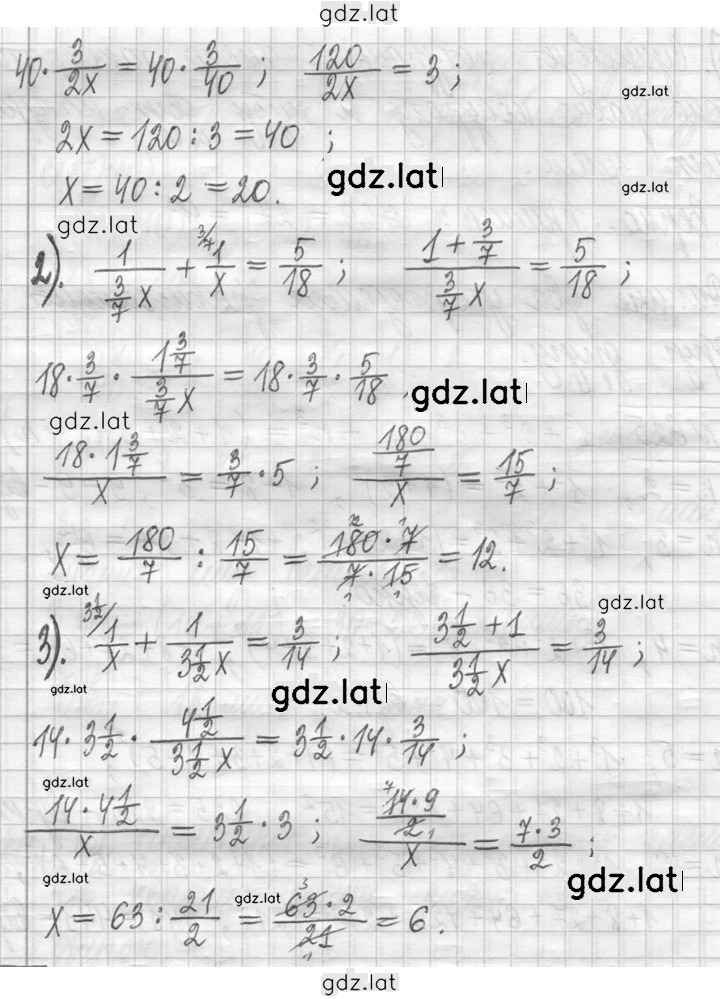 gdz.lat
40 · 3/2x = 40 · 3/40 ; 120/2x = 3 ;
gdz.lat
2x = 120 : 3 = 40 ;
gdz.lat gdz.lat
x = 40 : 2 = 20.
gdz.lat
2). 1/(3/7 x) + 3/7 / 1/x = 5/18 ; (1 + 3/7)/(3/7 x) = 5/18 ;
18 · 3/7 · (1 3/7)/(3/7 x) = 18 · 3/7 · 5/18
gdz.lat
gdz.lat
(18 · 1 3/7)/x = 3/7 · 5 ; (180/7)/x = 15/7 ;
x = 180/7 : 15/7 = (180 · 7)/(7 · 15) = 12.
12 1 1 1
gdz.lat gdz.lat
3). 3 1/2 / 1/x + 1/(3 1/2 x) = 3/14 ; (3 1/2 + 1)/(3 1/2 x) = 3/14 ;
gdz.lat gdz.lat
14 · 3 1/2 · (4 1/2)/(3 1/2 x) = 3 1/2 · 14 · 3/14 ;
gdz.lat
(14 · 4 1/2)/x = 3 1/2 · 3 ; (14 · 9/2)/x = (7 · 3)/2 ;
7 1
gdz.lat gdz.lat
x = 63 : 21/2 = (63 · 2)/21 = 6.
3 1
gdz.lat
gdz.lat